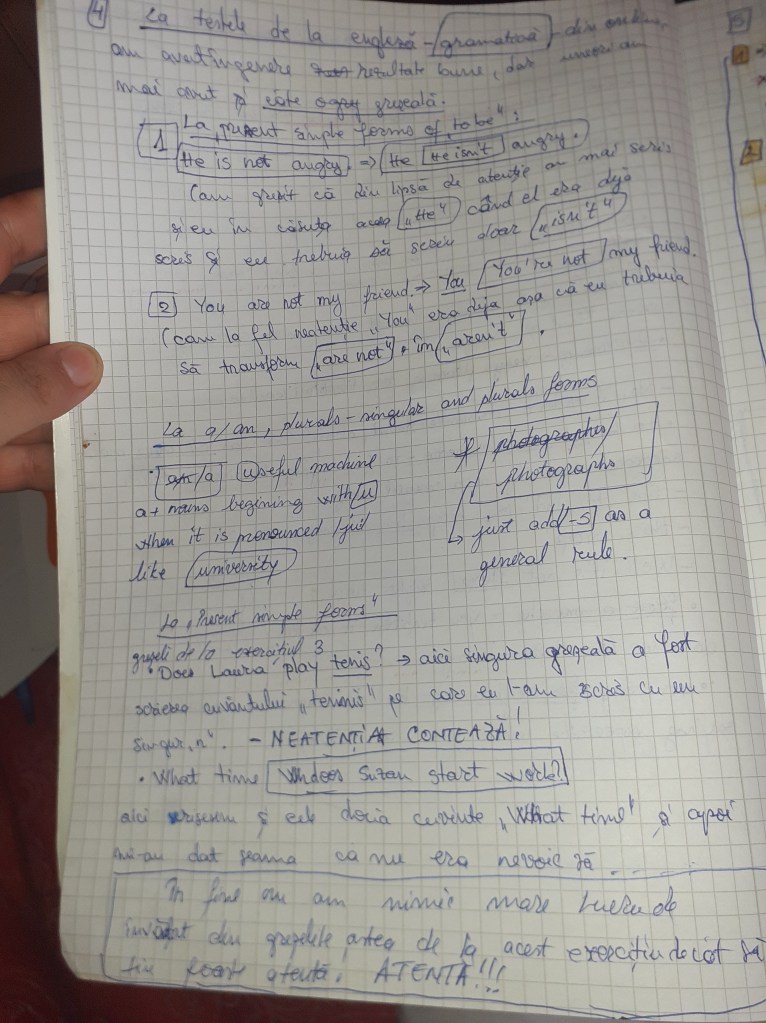 4 La testele de la engleză - gramatică - din online,
am avut în genere rezultate bune, dar uneori am
mai avut și câte o greșeală.
1 La „present simple forms of „to be":
He is not angry. => He He isn't angry.
(am greșit că din lipsă de atenție am mai scris
și eu în căsuță „He" când el era deja
scris și eu trebuia să scriu doar „isn't"
2 You are not my friend. => You You're not my friend.
(cam la fel neatenție „You" era deja așa că eu trebuia
să transform „are not" în „aren't".
La a/an, plurals - singular and plurals forms
• an/a useful machine
a + nouns begining with u
when it is pronounced /ju/
like university
* photographes/
photographs
↳ just add -s as a
general rule.
La „Present simple forms"
greșeli de la exercițiul 3
• Does Laura play tenis? → aici singura greșeală a fost
scrierea cuvântului „tennis" pe care eu l-am scris cu un
singur „n". - NEATENȚIA CONTEAZĂ!
• What time does Suzan start work?
aici și cele două cuvinte „What time" și apoi
mi-au dat seama ca nu era nevoie să...
În fine nu am nimic mare lucru de
învățat din greșelile astea de la acest exercițiu decât să
fiu foarte atentă. ATENTĂ!!!
5
1
2